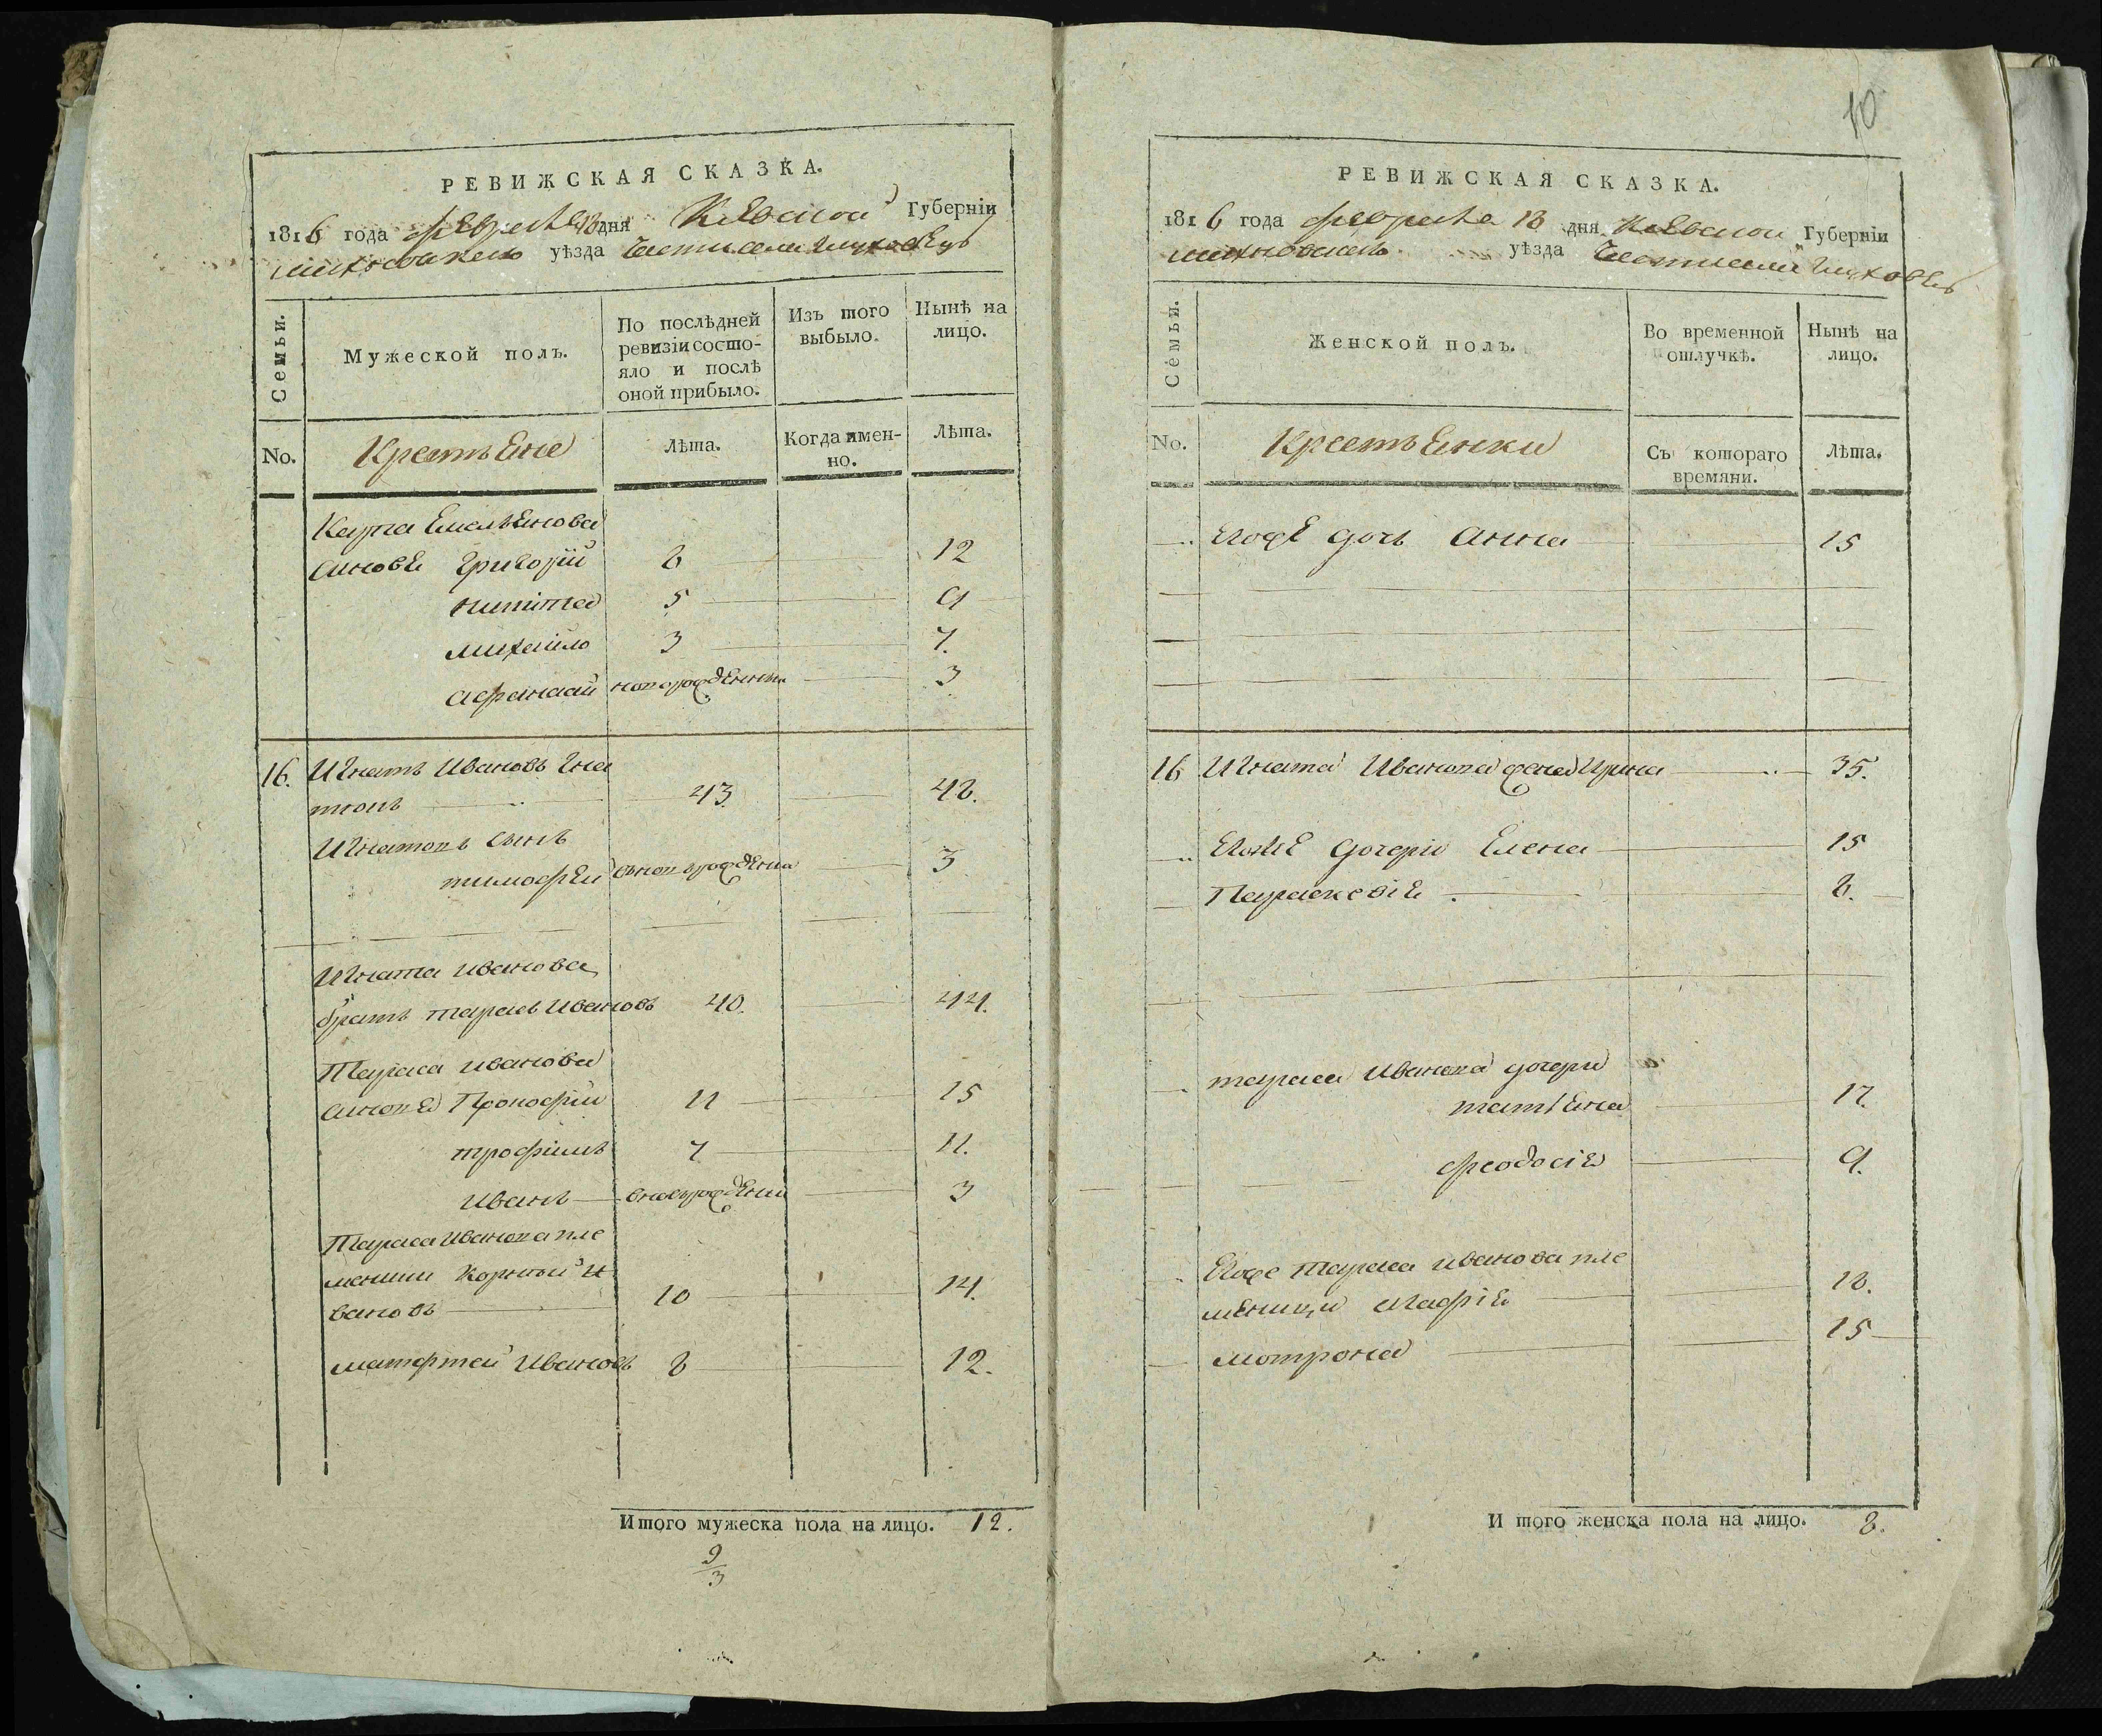 РЕВИЖСКАЯ СКАЗКА.
1816 года февраля 13 дня Киевской Губерніи
махновскаго уѣзда части села Глуховецъ
Семьи.
Мужеской полъ.
По послѣдней
ревизіи состо-
яло и послѣ
оной прибыло.
Изъ того
выбыло.
Нынѣ на
лицо.
No.
Крестьяне
Лѣта.
Когда имен-
но.
Лѣта.
Карпа Емельянова
синовя Григорій 8 12
никита 5 9
михайло 3 7.
афанасій новорожденны 3
16. Игнатъ Ивановъ Гна
тюкъ 43. 48.
Игнатовъ сынъ
тимофей 3
Игната иванова
братъ тарасъ Ивановъ 40. 44.
Тараса иванова
синовя Прокофій 11 15
трофимъ 7 11.
иванъ 3
Тараса Иванова пле
менни Корнѣй И
вановъ 10 14.
матфтей Ивановъ 8 12.
Итого мужеска пола на лицо. 12.
9
3
10
РЕВИЖСКАЯ СКАЗКА.
1816 года февраля 13 дня Киевской Губерніи
махновскаго уѣзда части села Глуховецъ
Семьи.
Женской полъ.
Во временной
отлучкѣ.
Нынѣ на
лицо.
No.
Крестьянки
Съ котораго
времяни.
Лѣта.
Егоже дочь Анна 15
16 Игната Иванова жена Ирина 35.
Егоже дочери Елена 15
Параскевія 8.
тараса Иванова дочери
татіяна 17.
феодосія 9.
Егоже тараса иванова пле
мяници агафія 18.
мотрона 15
И того женска пола на лицо. 8.